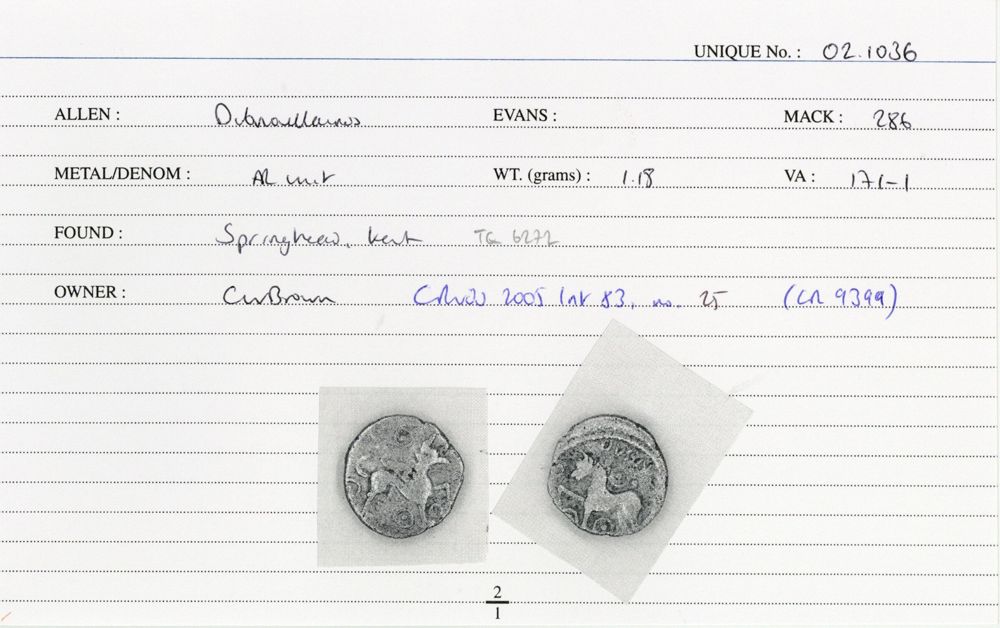 UNIQUE No. : 02.1036
ALLEN : Dubnovellaunos EVANS : MACK : 286
METAL/DENOM : AR unit WT. (grams) : 1.18 VA : 171-1
FOUND : Springhead, Kent TQ 6272
OWNER : CW Brown 2005 Int 83, no. 25 (CR 9399)
2
1